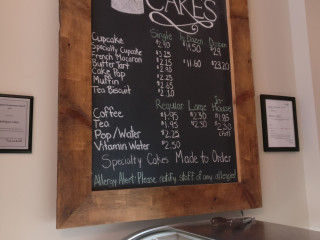 CAKES
Single ½ Dozen Dozen
Cupcake $2.50
Specialty Cupcake $3.25
French Macaron $2.15
Butter Tart $11.60 $23.20
Cake Pop
Muffin $2.25
Tea Biscuit
Regular Large In-House
Coffee $1.95 $2.30 $1.95
Tea $1.95 $2.30 $2.30
Pop/Water $2.25
Vitamin Water $2.50
Specialty Cakes Made to Order
Allergy Alert: Please notify staff of any allergies!